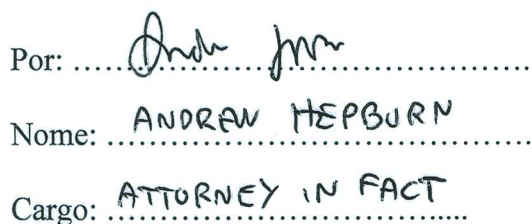 Por: ..............................
Nome: ANDREW HEPBURN
Cargo: ATTORNEY IN FACT